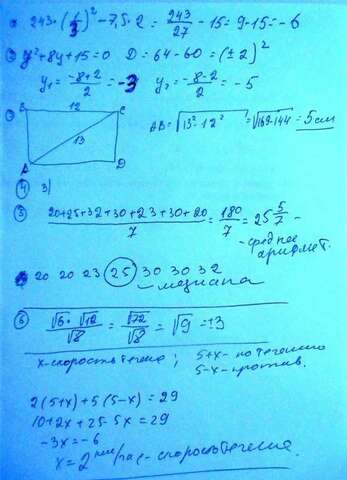 ① 243 · (1/3)² - 7,5 · 2 = 243/27 - 15 = 9 - 15 = - 6
② y² + 8y + 15 = 0 D = 64 - 60 = (± 2)²
y₁ = (-8+2)/2 = -3 y₂ = (-8-2)/2 = -5
③ B 12 C
13
A D
AB = √(13² - 12²) = √(169-144) = 5 см
④ 3)
⑤ (20+25+32+30+23+30+20)/7 = 180/7 = 25 5/7 -
- среднее
арифмет.
20 20 23 25 30 30 32
- медиана
⑥ (√6 · √12)/√8 = √72/√8 = √9 = 3
x - скорость течения; 5+x - по течению
5-x - против.
2(5+x)+5(5-x)=29
10+2x+25-5x=29
-3x=-6
x=2 км/час - скорость течения.